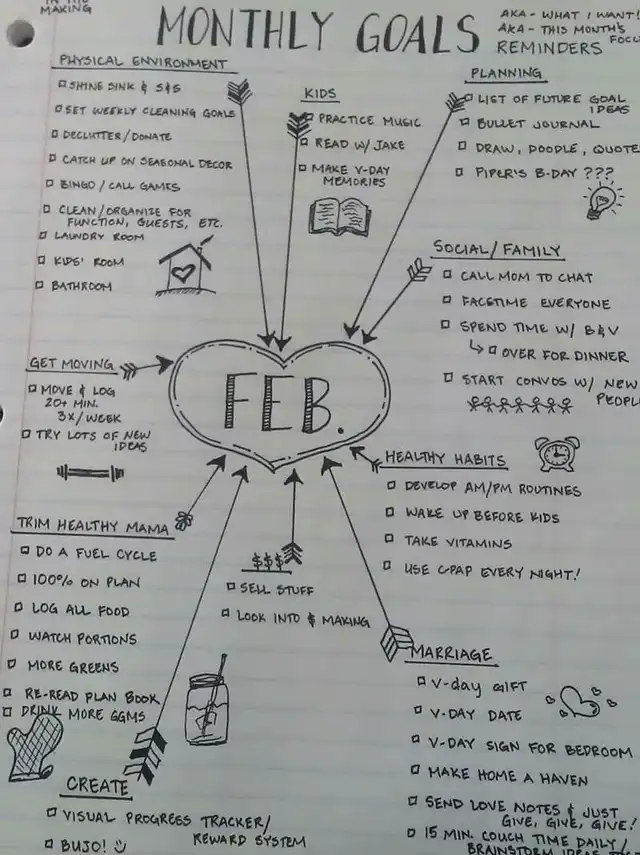 IN THE
MAKING
MONTHLY GOALS
AKA - WHAT I WANT!
AKA - THIS MONTH'S
REMINDERS FOCU
PHYSICAL ENVIRONMENT
SHINE SINK & S&S
SET WEEKLY CLEANING GOALS
DECLUTTER/DONATE
CATCH UP ON SEASONAL DECOR
BINGO/CALL GAMES
CLEAN/ORGANIZE FOR
FUNCTION, GUESTS, ETC.
LAUNDRY ROOM
KIDS' ROOM
BATHROOM
KIDS
PRACTICE MUSIC
READ W/ JAKE
MAKE V-DAY
MEMORIES
PLANNING
LIST OF FUTURE GOAL
IDEAS
BULLET JOURNAL
DRAW, DOODLE, QUOTE
PIPER'S B-DAY ???
SOCIAL/FAMILY
CALL MOM TO CHAT
FACETIME EVERYONE
SPEND TIME W/ B&V
OVER FOR DINNER
START CONVOS W/ NEW
PEOPL
GET MOVING
MOVE & LOG
20+ MIN.
3X/WEEK
TRY LOTS OF NEW
IDEAS
FEB.
HEALTHY HABITS
DEVELOP AM/PM ROUTINES
WAKE UP BEFORE KIDS
TAKE VITAMINS
USE C-PAP EVERY NIGHT!
TRIM HEALTHY MAMA
DO A FUEL CYCLE
100% ON PLAN
LOG ALL FOOD
WATCH PORTIONS
MORE GREENS
RE-READ PLAN BOOK
DRINK MORE GGMS
$$$
SELL STUFF
LOOK INTO $ MAKING
MARRIAGE
V-day GIFT
V-DAY DATE
V-DAY SIGN FOR BEDROOM
MAKE HOME A HAVEN
SEND LOVE NOTES & JUST
GIVE, GIVE, GIVE!
15 MIN. COUCH TIME DAILY/
BRAINSTORM IDEAS
CREATE
VISUAL PROGRESS TRACKER/
REWARD SYSTEM
BUJO!